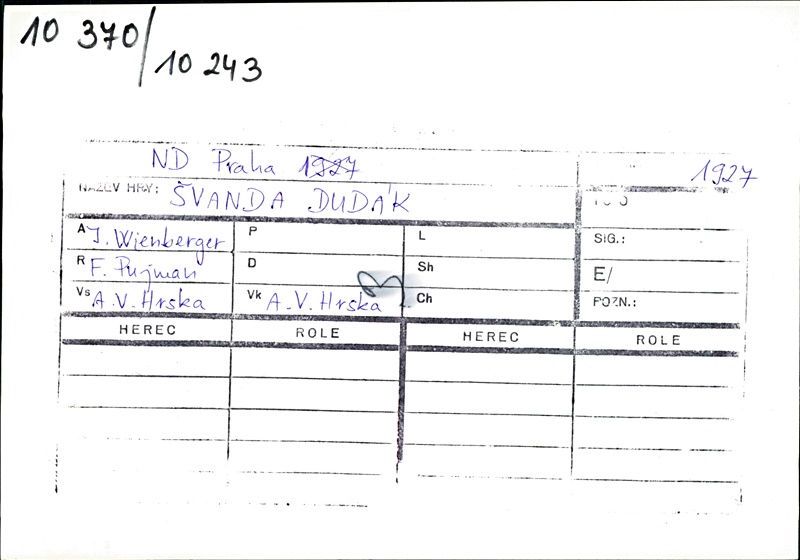 10 370/
10 243
ND Praha 1927 1927
NÁZEV HRY: ŠVANDA DUDÁK
A J. Wienberger P L SIG.:
R F. Pujman D Sh E/
Vs A.V. Hrska Vk A.V. Hrska Ch POZN.:
HEREC ROLE HEREC ROLE